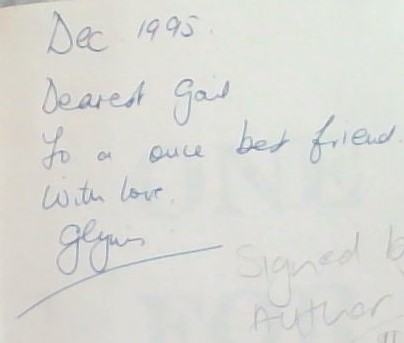 Dec 1995.
Dearest Gail
To a once best friend.
With love.
Glynis
Signed b
Author